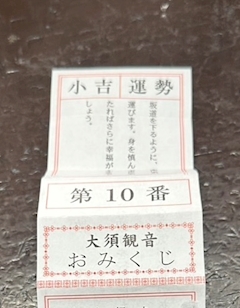 小吉 運勢
坂道を下るように、
運びます。身を慎み
たればさらに幸福が
しょう。
第10番
大須観音
おみくじ